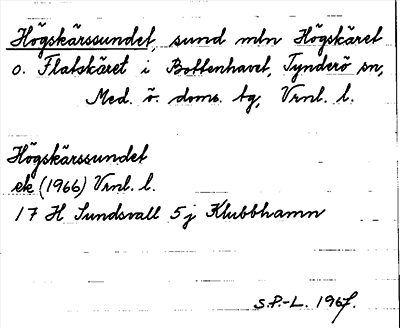 Högskärssundet, sund mln Högskäret
o. Flatskäret i Bottenhavet, Tynderö sn,
Med. ö. doms. tg, Vrnl. l.
Högskärssundet
ek (1966) Vrnl. l.
17 H Sundsvall 5j Klubbhamn
S.P.-L. 1967.